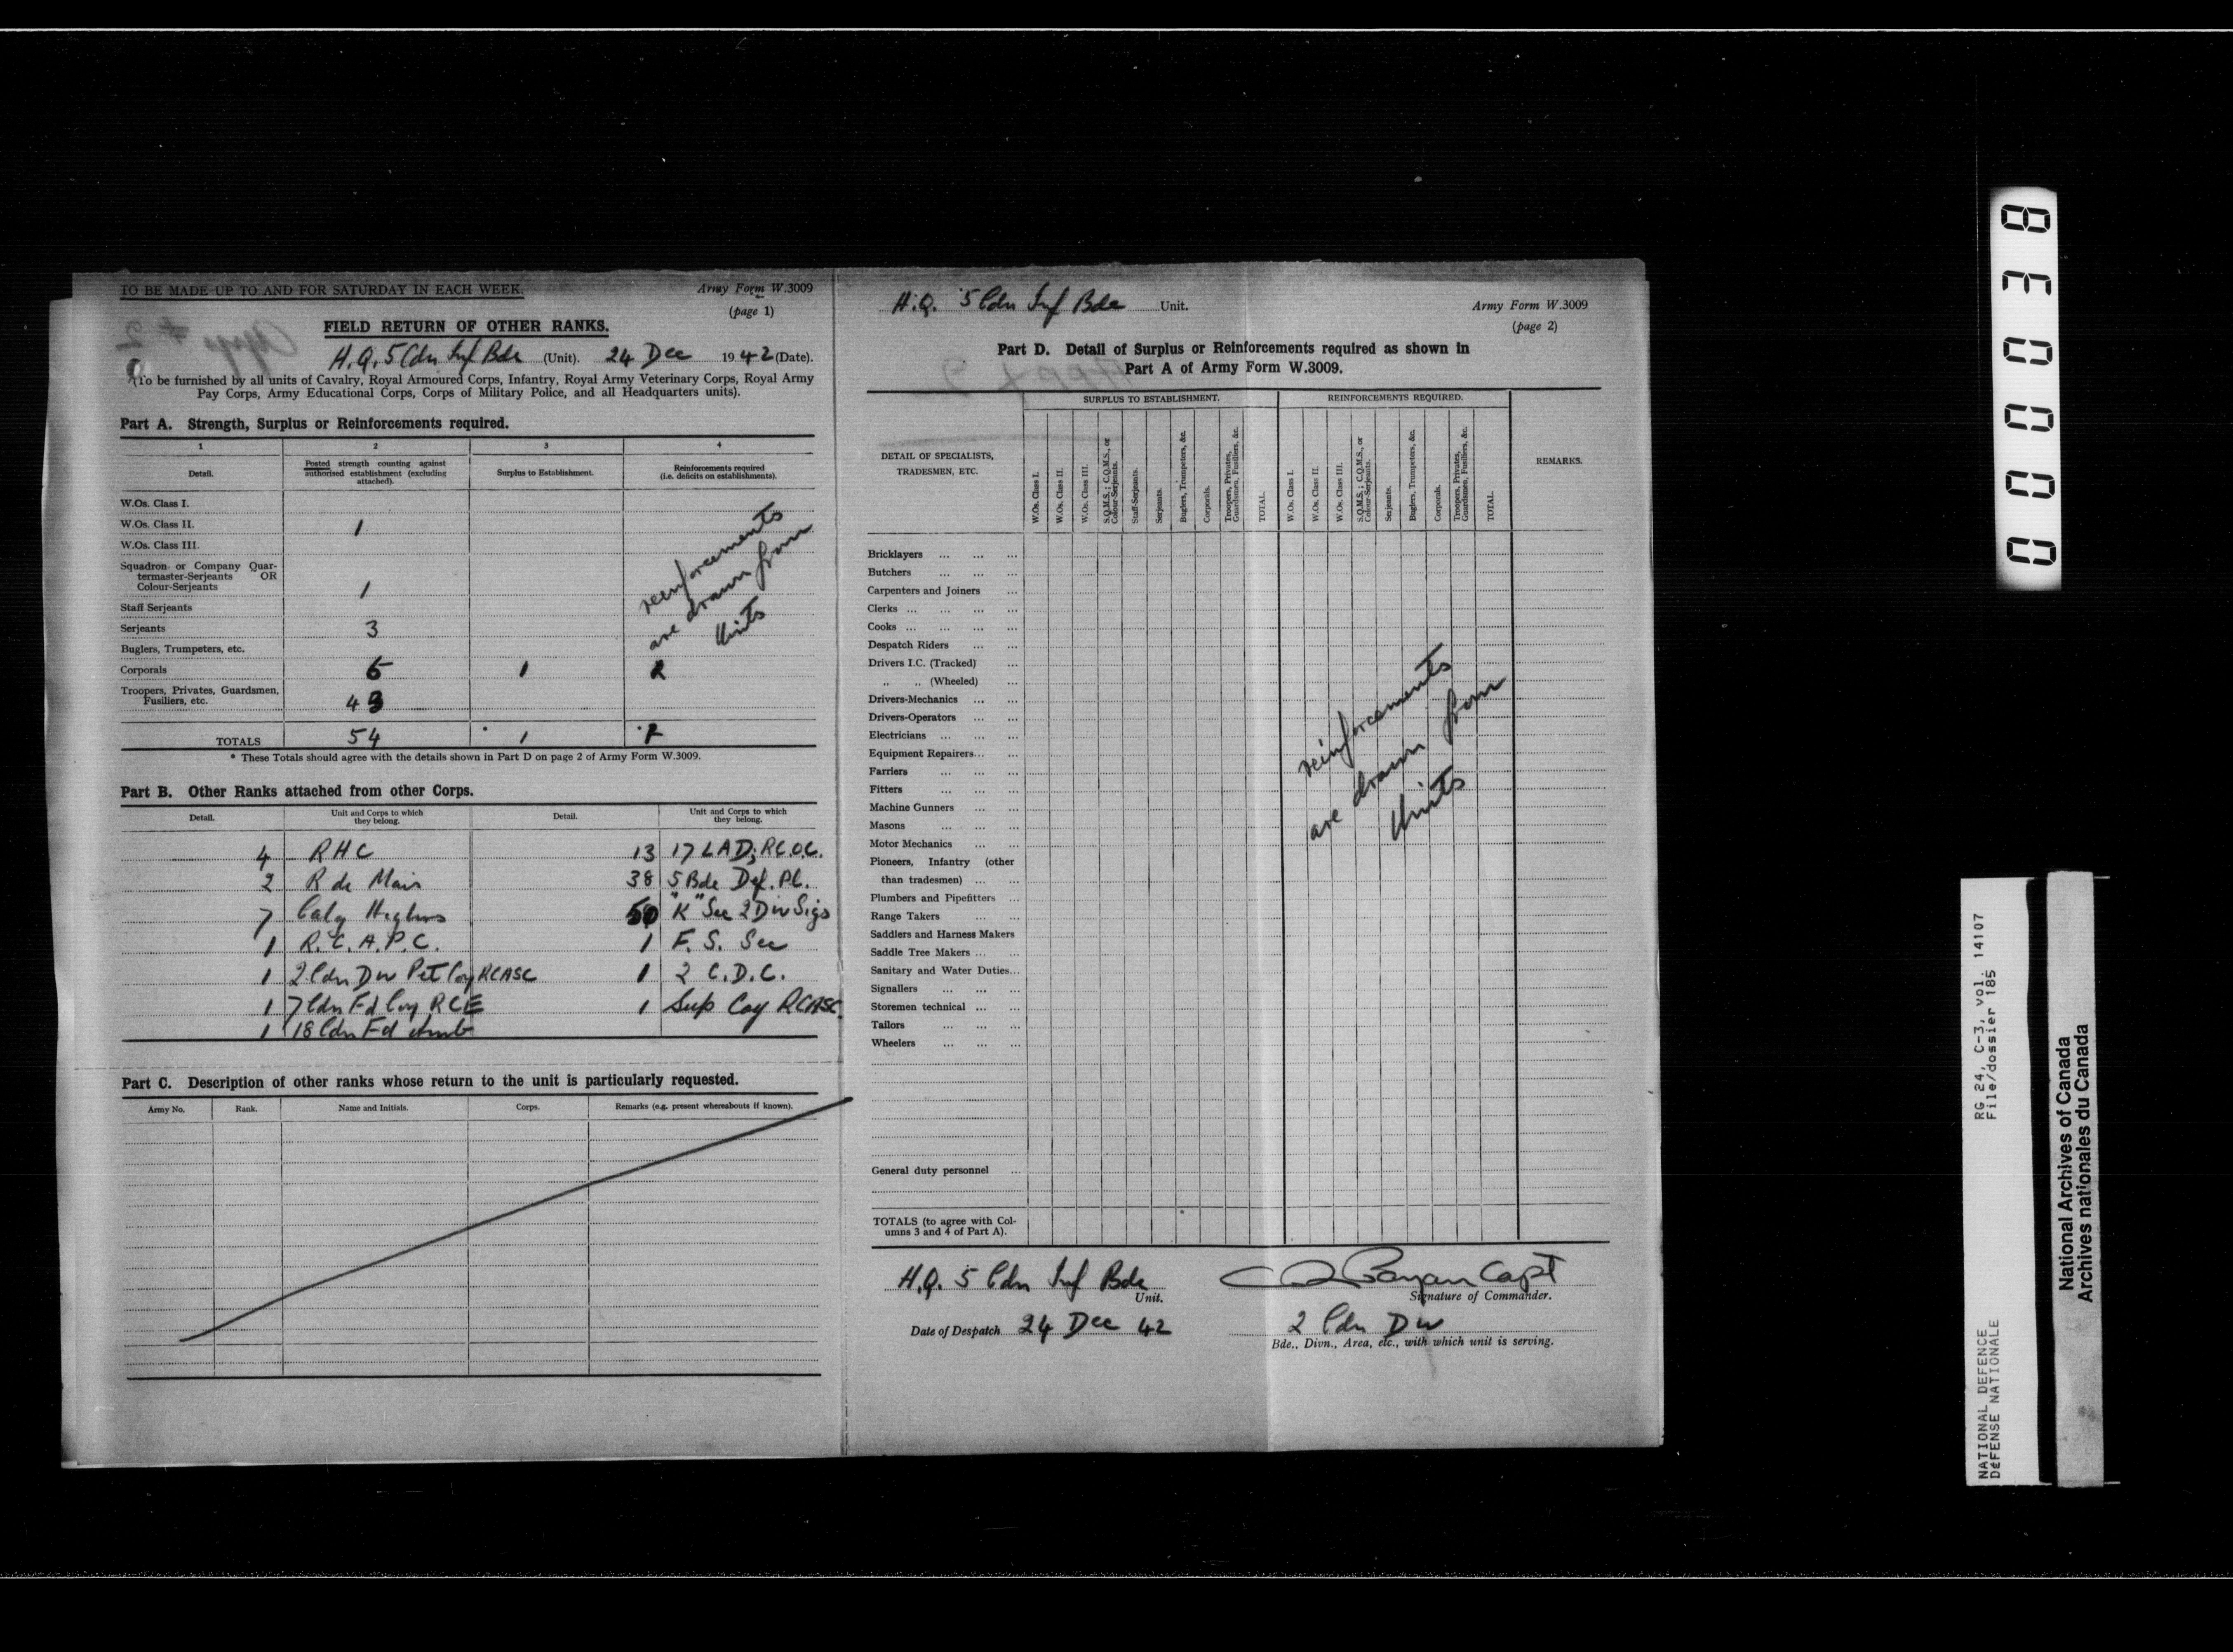 TO BE MADE UP TO AND FOR SATURDAY IN EACH WEEK.
Army Form W.3009
(page 1)
FIELD RETURN OF OTHER RANKS.
H.Q. 5 Cdn Inf Bde (Unit). 24 Dec 1942 (Date).
(To be furnished by all units of Cavalry, Royal Armoured Corps, Infantry, Royal Army Veterinary Corps, Royal Army
Pay Corps, Army Educational Corps, Corps of Military Police, and all Headquarters units).
Part A. Strength, Surplus or Reinforcements required.
1 2 3 4
Detail. Posted strength counting against authorised establishment (excluding attached). Surplus to Establishment. Reinforcements required (i.e. deficits on establishments).
W.Os. Class I.
W.Os. Class II. 1
W.Os. Class III.
Squadron or Company Quar-
termaster-Serjeants OR
Colour-Serjeants 1
Staff Serjeants
Serjeants 3
Buglers, Trumpeters, etc.
Corporals 6 1 2
Troopers, Privates, Guardsmen,
Fusiliers, etc. 43
reinforcements
are drawn from
Units
TOTALS 54 1
* These Totals should agree with the details shown in Part D on page 2 of Army Form W.3009.
Part B. Other Ranks attached from other Corps.
Detail. Unit and Corps to which they belong. Detail. Unit and Corps to which they belong.
4 RHC 13 17 LAD; RCOC.
2 R de Mais 38 5 Bde Def. Pl.
7 Calg Highrs 50 "K" Sec 2 Div Sigs
1 R.C.A.P.C. 1 F. S. Sec
1 2 Cdn Div Pet Coy RCASC 1 2 C.D.C.
1 7 Cdn Fd Coy RCE 1 Sup Coy RCASC.
1 18 Cdn Fd Amb
Part C. Description of other ranks whose return to the unit is particularly requested.
Army No. Rank. Name and Initials. Corps. Remarks (e.g. present whereabouts if known).
H.Q. 5 Cdn Inf Bde Unit.
Army Form W.3009
(page 2)
Part D. Detail of Surplus or Reinforcements required as shown in
Part A of Army Form W.3009.
DETAIL OF SPECIALISTS,
TRADESMEN, ETC.
SURPLUS TO ESTABLISHMENT.
W.Os. Class I.
W.Os. Class II.
W.Os. Class III.
S.Q.M.S.; C.Q.M.S., or Colour-Serjeants.
Staff-Serjeants.
Serjeants.
Buglers, Trumpeters, &c.
Corporals.
Troopers, Privates, Guardsmen, Fusiliers, &c.
TOTAL.
REINFORCEMENTS REQUIRED.
W.Os. Class I.
W.Os. Class II.
W.Os. Class III.
S.Q.M.S.; C.Q.M.S., or Colour-Serjeants.
Serjeants.
Buglers, Trumpeters, &c.
Corporals.
Troopers, Privates, Guardsmen, Fusiliers, &c.
TOTAL.
REMARKS.
Bricklayers ... ... ...
Butchers ... ... ...
Carpenters and Joiners ...
Clerks ... ... ... ...
Cooks ... ... ... ...
Despatch Riders ... ...
Drivers I.C. (Tracked) ...
„ „ (Wheeled) ...
Drivers-Mechanics ... ...
Drivers-Operators ... ...
Electricians ... ... ...
Equipment Repairers... ...
Farriers ... ... ...
Fitters ... ... ...
Machine Gunners ... ...
Masons ... ... ...
Motor Mechanics ... ...
Pioneers, Infantry (other
than tradesmen) ... ...
Plumbers and Pipefitters ...
Range Takers ... ...
Saddlers and Harness Makers
Saddle Tree Makers ... ...
Sanitary and Water Duties...
Signallers ... ... ...
Storemen technical ... ...
Tailors ... ... ...
Wheelers ... ... ...
reinforcements
are drawn from
Units
General duty personnel ...
TOTALS (to agree with Col-
umns 3 and 4 of Part A).
H.Q. 5 Cdn Inf Bde
Unit.
Capt
Signature of Commander.
Date of Despatch 24 Dec 42
2 Cdn Div
Bde., Divn., Area, etc., with which unit is serving.
000038
NATIONAL DEFENCE RG 24, C-3, vol. 14107
DÉFENSE NATIONALE File/dossier 185
National Archives of Canada
Archives nationales du Canada